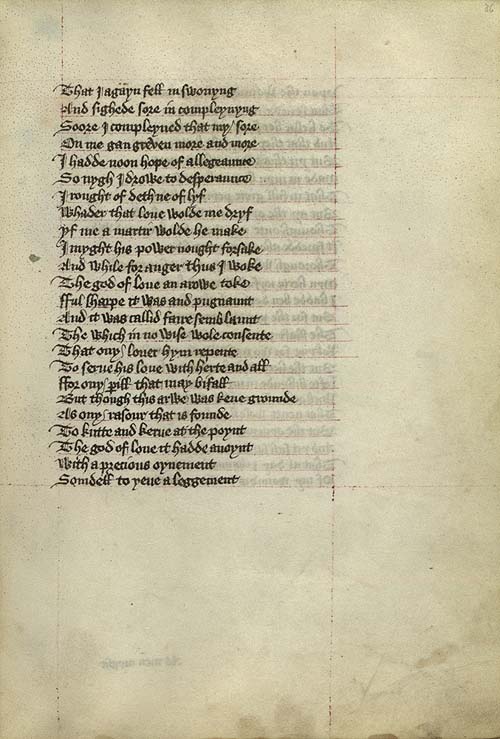 36
That I agayn fell in swonyng
And sighede sore in compleynyng
Soore I compleyned that my sore
On me gan greven more and more
I hadde noon hope of allegeaunce
So nygh I drowe to desperaunce
I rought of deth ne of lyf
Whader that loue wolde me dryf
yf me a martir wolde he make
I myght his power nought forsake
And while for anger thus I woke
The god of loue an arowe toke
fful sharpe it was and pugnaunt
And it was callid faire semblaunt
The which in no wise wole consente
That ony louer hym repente
To serue his loue with herte and all
ffor ony pill that may bifall
But though this arwe was kene grounde
As ony rasour that is founde
To kutte and kerue at the poynt
The god of loue it hadde anoynt
With a precious oynement
Somdell to yeue a leggement